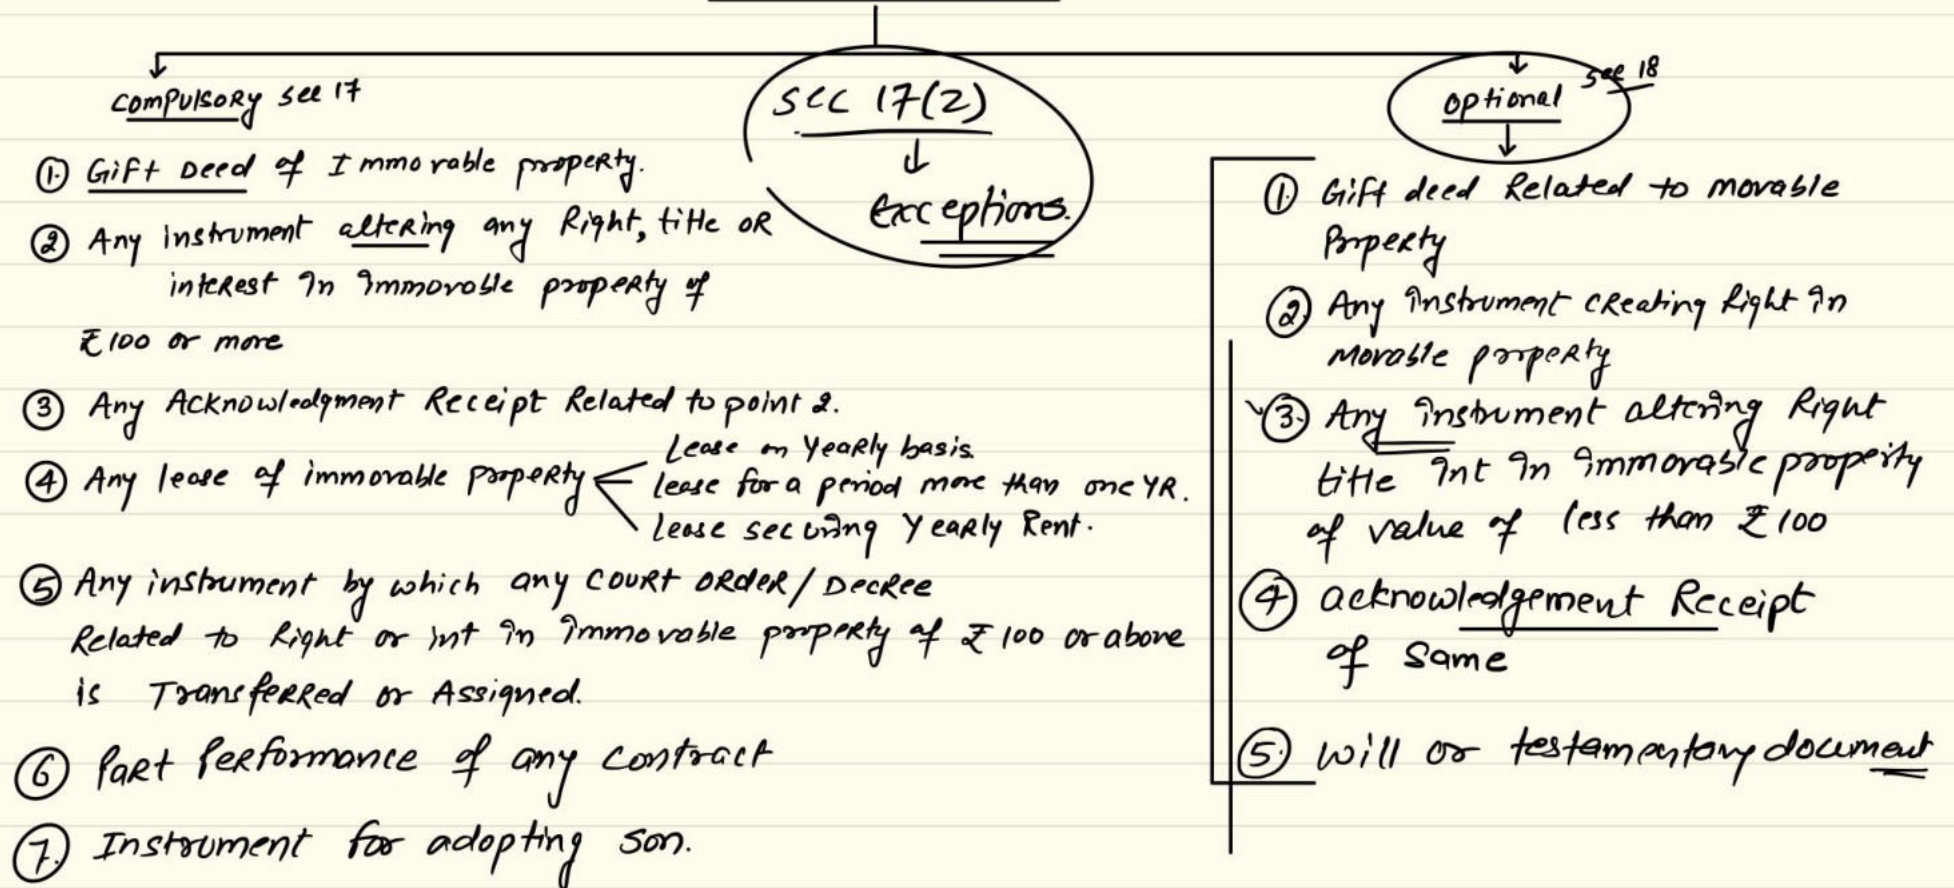 Compulsory sec 17
① Gift Deed of Immovable property.
② Any instrument altering any Right, title OR
interest in immovable property of
₹100 or more
③ Any Acknowledgment Receipt Related to point 2.
④ Any lease of immovable property
Lease on Yearly basis.
lease for a period more than one YR.
lease securing Yearly Rent.
⑤ Any instrument by which any court order/Decree
Related to Right or int in immovable property of ₹100 or above
is Transferred or Assigned.
⑥ Part Performance of any contract
⑦ Instrument for adopting son.
Sec 17(2)
↓
Exceptions.
optional sec 18
① Gift deed Related to movable
Property
② Any instrument creating Right in
Movable property
③ Any instrument altering Right
title int in immovable property
of value of less than ₹100
④ acknowledgement Receipt
of Same
⑤ will or testamentary document